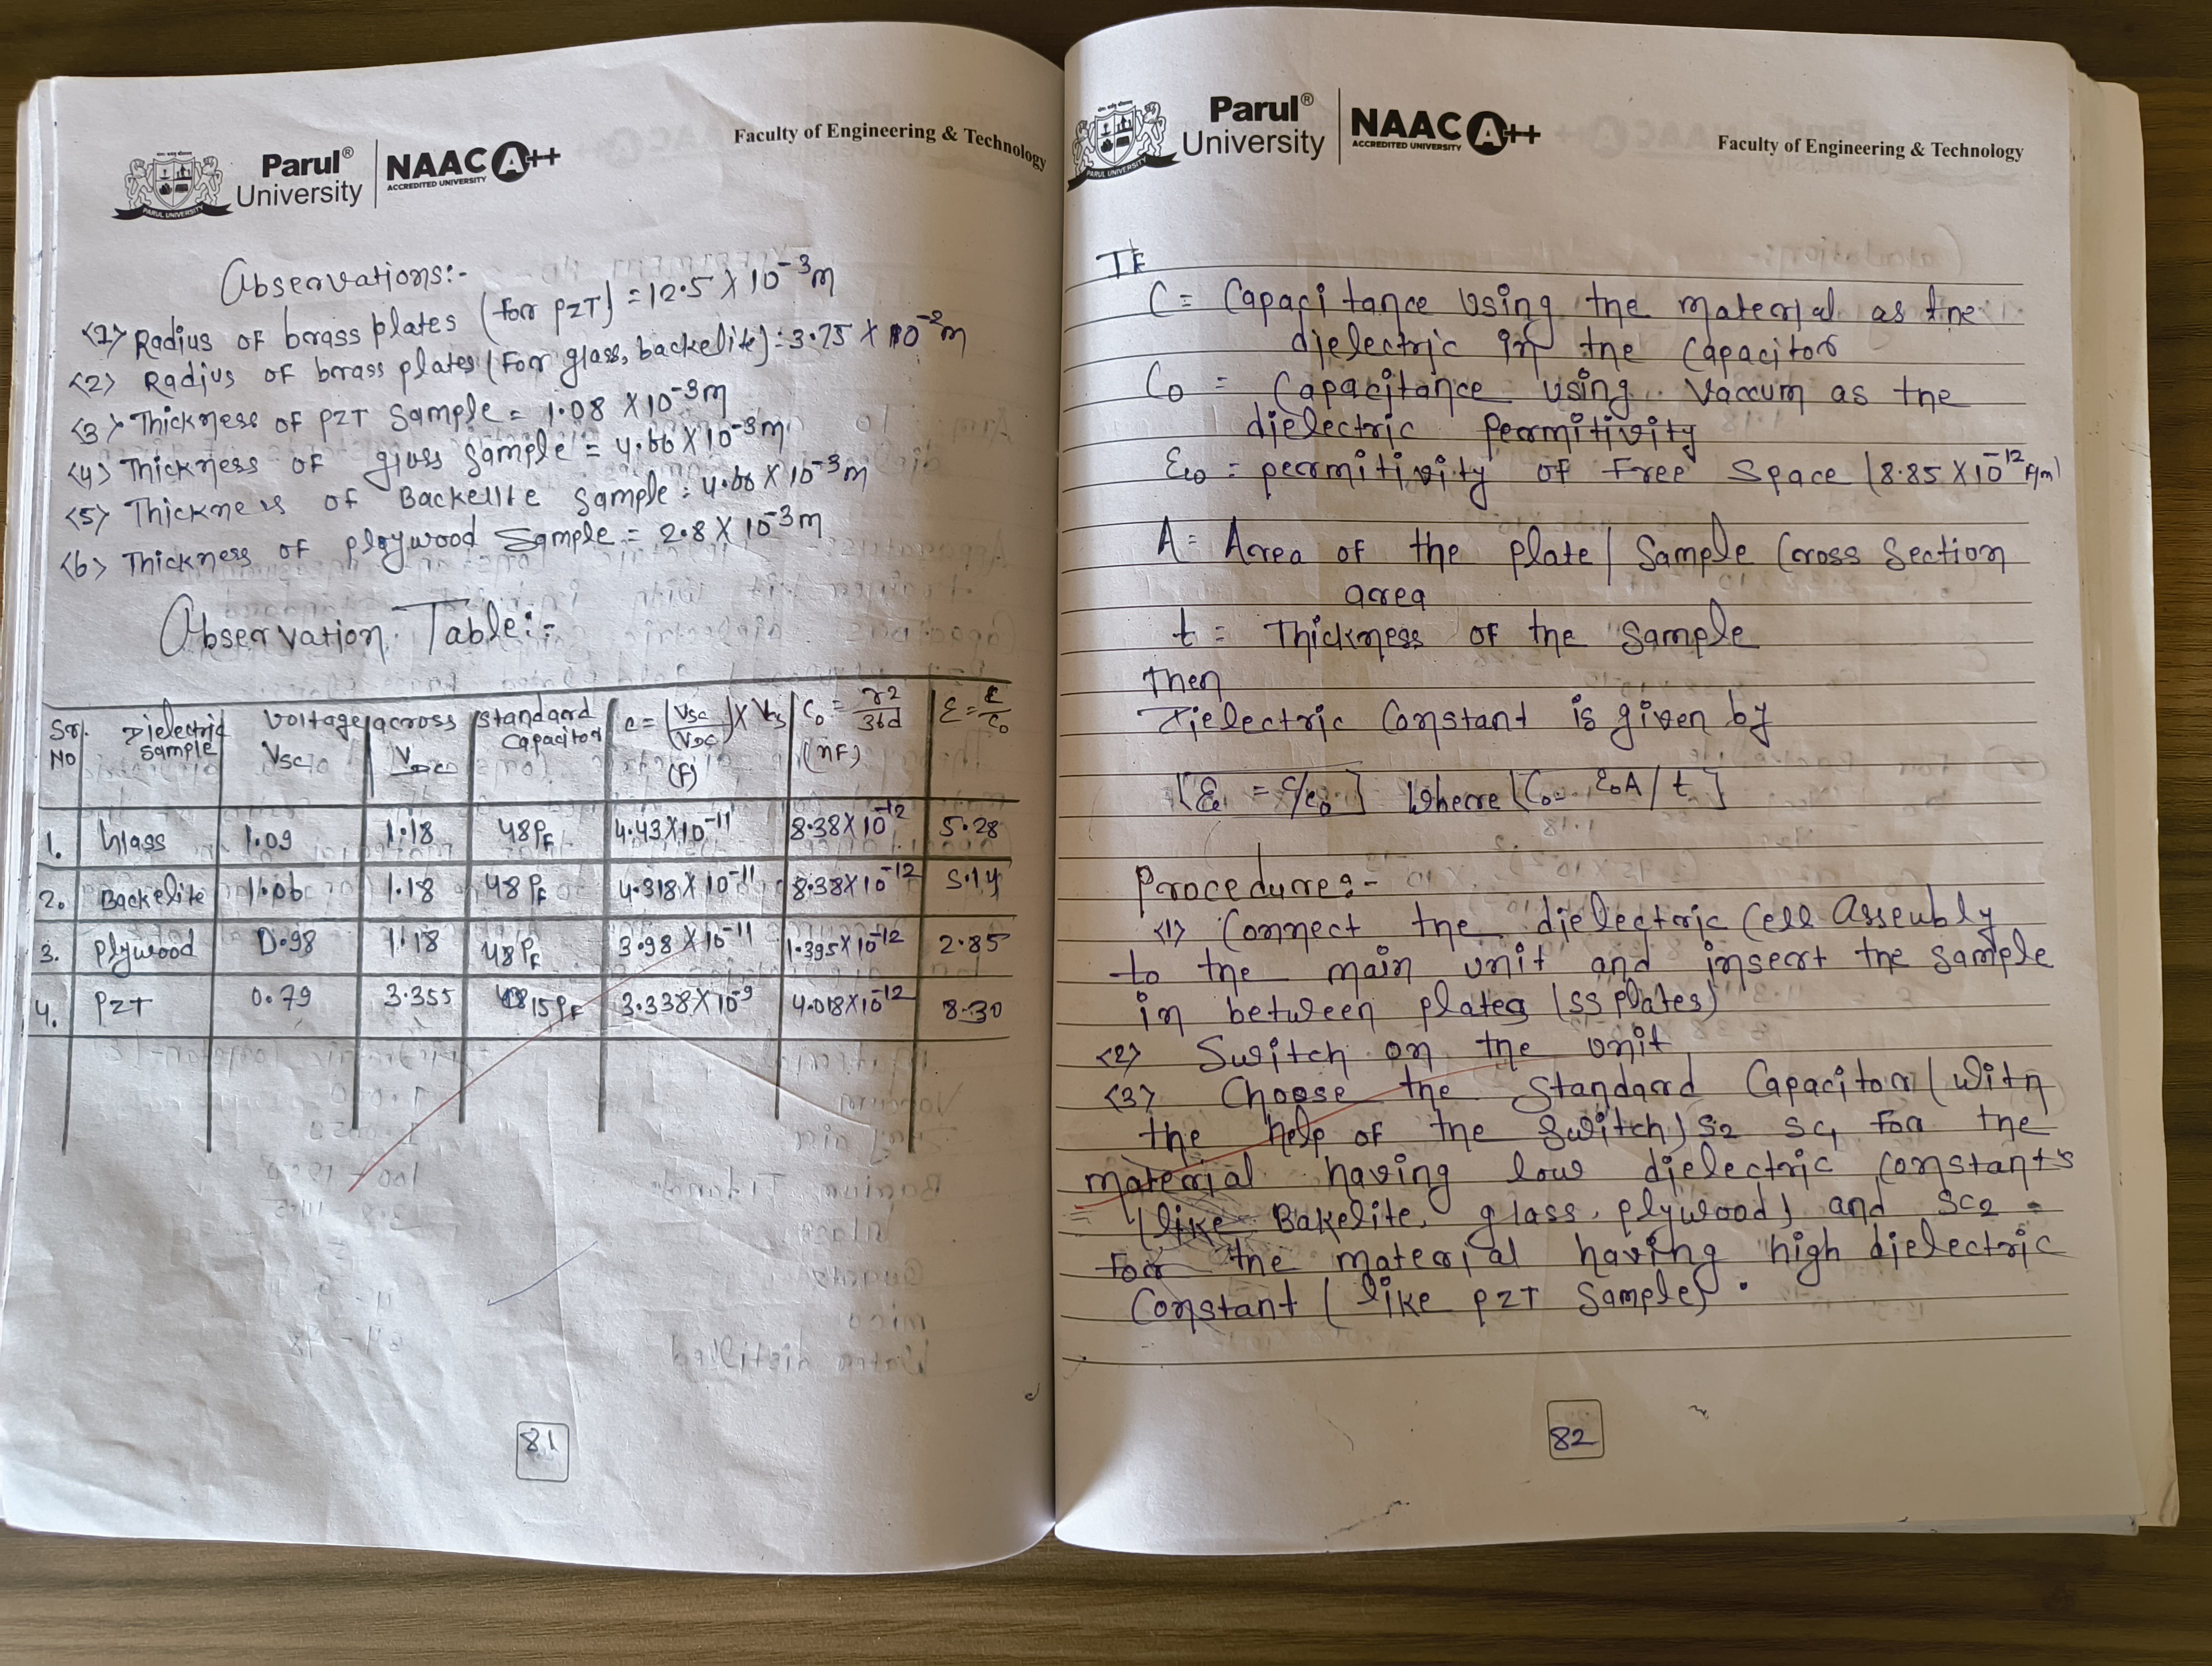 Parul®
University
PARUL UNIVERSITY
NAAC A++
ACCREDITED UNIVERSITY
Faculty of Engineering & Technology
Observations:-
<1> Radius of brass plates (for PZT) = 12.5 × 10⁻³m
<2> Radius of brass plates (For glass, backelite) = 3.75 × 10⁻²m
<3> Thickness of PZT Sample = 1.08 × 10⁻³m
<4> Thickness of glass Sample = 4.66 × 10⁻³m
<5> Thickness of Backelite Sample = 4.66 × 10⁻³m
<6> Thickness of plywood Sample = 2.8 × 10⁻³m
Observation Table:-
Sr. No | Dielectric sample | Voltage across VSC | VDC | Standard Capacitor | C = (VSC/VDC) × (F) | C₀ = r²/36d (nF) | ε = C/C₀
1. Glass 1.09 1.18 48PF 4.43×10⁻¹¹ 8.38×10⁻¹² 5.28
2. Backelite 1.06 1.18 48PF 4.318×10⁻¹¹ 8.38×10⁻¹² 5.14
3. Plywood 0.98 1.18 48PF 3.98×10⁻¹¹ 1.395×10⁻¹² 2.85
4. PZT 0.79 3.355 3.338×10⁻⁹ 4.018×10⁻¹² 8.30
81
Parul®
University
PARUL UNIVERSITY
NAAC A++
ACCREDITED UNIVERSITY
Faculty of Engineering & Technology
IF
C = Capacitance Using the material as the
dielectric in the Capacitor
C₀ = Capacitance using Vaccum as the
dielectric Permitivity
ε₀ = permitivity of Free Space (8.85 × 10⁻¹² F/m)
A = Area of the plate / Sample Cross Section
area
t = Thickness of the Sample
Then
Dielectric Constant is given by
[ε = C/C₀] Where [C₀ = ε₀A / t]
Procedure:-
<1> Connect the dielectric Cell Asseubly
to the main unit and insert the sample
in between plates (SS plates)
<2> Switch on the unit
<3> Choose the Standard Capacitor (with
the help of the Switch) S2 SC1 For the
material having low dielectric Constants
(like Bakelite, glass, plywood) and SC2
For the material having high dielectric
Constant (like PZT Sample).
82